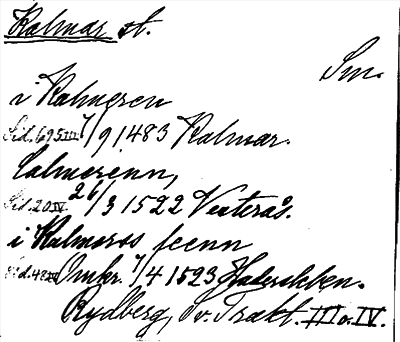 Kalmar st.
Sm.
i Kalmeren
Sid. 695 III. 7/9 1483 Kalmar.
Calmerenn,
Sid. 20 IV. 26/3 1522 Vesterås.
i Kalmeros feenn
Sid. 48 IV Omkr. 7/4 1523 Hadersleben.
Rydberg, Sv. Trakt. III o. IV.